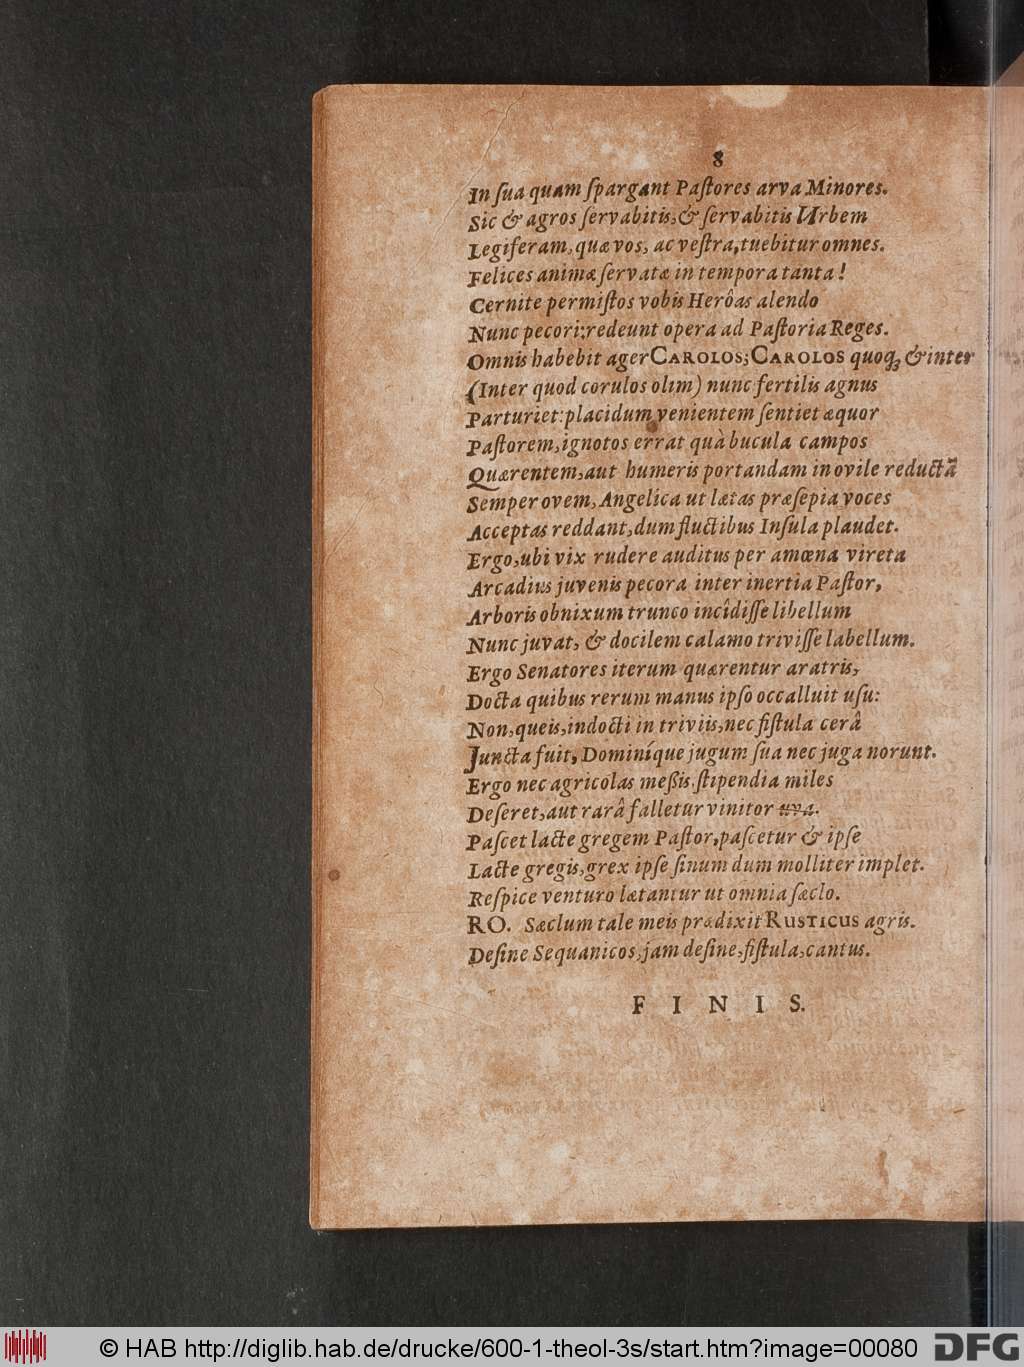 8
In ſua quam ſpargant Paſtores arva Minores.
Sic & agros ſervabitis,& ſervabitis Urbem
Legiferam, quæ vos, ac veſtra, tuebitur omnes.
Felices animæ ſervatæ in tempora tanta!
Cernite permiſtos vobis Herôas alendo
Nunc pecori: redeunt opera ad Paſtoria Reges.
Omnis habebit ager CAROLOS; CAROLOS quoq; & inter
(Inter quod corulos olim) nunc fertilis agnus
Parturiet: placidum venientem ſentiet æquor
Paſtorem, ignotos errat quà bucula campos
Quærentem, aut humeris portandam in ovile reductã
Semper ovem, Angelica ut lætas præſepia voces
Acceptas reddant, dum fluctibus Inſula plaudet.
Ergo, ubi vix rudere auditus per amœna vireta
Arcadius juvenis pecora inter inertia Paſtor,
Arboris obnixum trunco incîdiſſe libellum
Nunc juvat, & docilem calamo triviſſe labellum.
Ergo Senatores iterum quærentur aratris,
Docta quibus rerum manus ipſo occalluit uſu:
Non, queis, indocti in triviis, nec fiſtula cerâ
Juncta fuit, Dominíque jugum ſua nec juga norunt.
Ergo nec agricolas meßis, ſtipendia miles
Deſeret, aut rarâ falletur vinitor uva.
Paſcet lacte gregem Paſtor, paſcetur & ipſe
Lacte gregis, grex ipſe ſinum dum molliter implet.
Reſpice venturo lætantur ut omnia ſæclo.
RO. Sæclum tale meis prædixit RUSTICUS agris.
Deſine Sequanicos, jam deſine, fiſtula, cantus.
FINIS.
© HAB http://diglib.hab.de/drucke/600-1-theol-3s/start.htm?image=00080
DFG